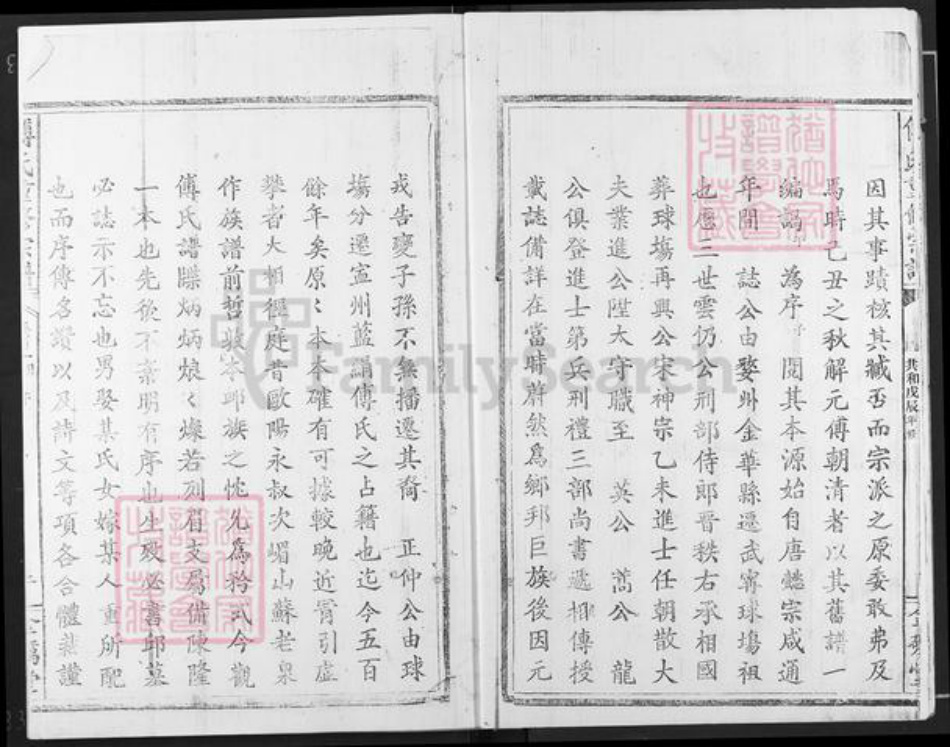 因其事蹟核其臧否而宗派之原委敢弗及
焉時己丑之秋解元傅朝清者以其舊譜一
編謁 為序 閱其本源始自唐懿宗咸通
年間 誌公由婺州金華縣遷武寧球塲祖
也歷三世雲仍公刑部侍郎晋秩右承相國
葬球塲再興公宋神宗乙未進士任朝散大
夫業進公陞太守職至 英公 蒿公 龍
公俱登進士第兵刑禮三部尚書遞相傳授
載誌備詳在當時蔚然為鄉邦巨族後因元
共和戊辰年修
戎告變子孫不無播遷其裔 正仲公由球
塲分遷宣州藍 傅氏之占籍也迄今五百
餘年矣原〻本本確有可據較晚近胥引虛
攀者大相徑庭昔歐陽永叔次嵋山蘇老泉
作族譜前哲敦本耶族之忱先為矜式今觀
傅氏譜牒炳炳烺〻燦若列眉支屬備陳隆
一本也先後不紊明有序也生歿必書邱墓
必誌示不忘也男娶某氏女嫁某人重所配
也而序傳名讚以及詩文等項各合體裁謹
傅氏重修宗譜
FamilySearch